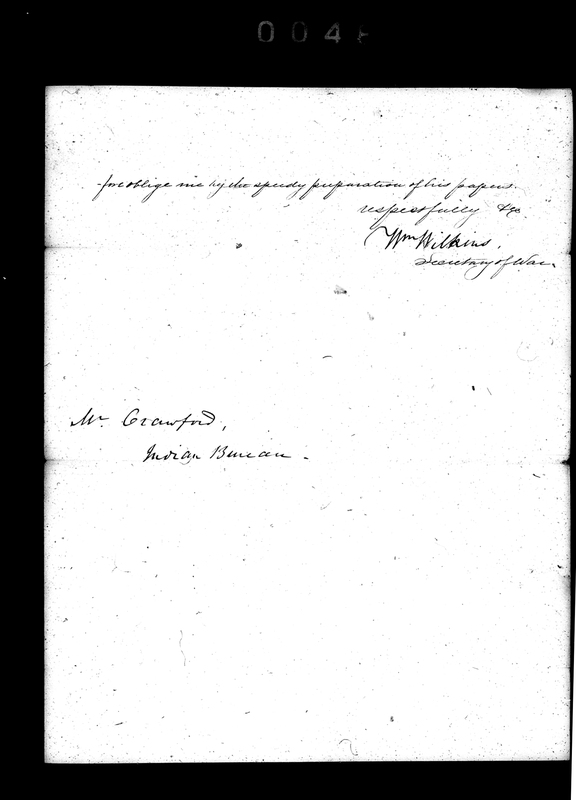 004
fore oblige me by the speedy preparation of his papers.
respectfully &c
Wm Wilkins.
Secretary of War.
Mr Crawford,
Indian Bureau.